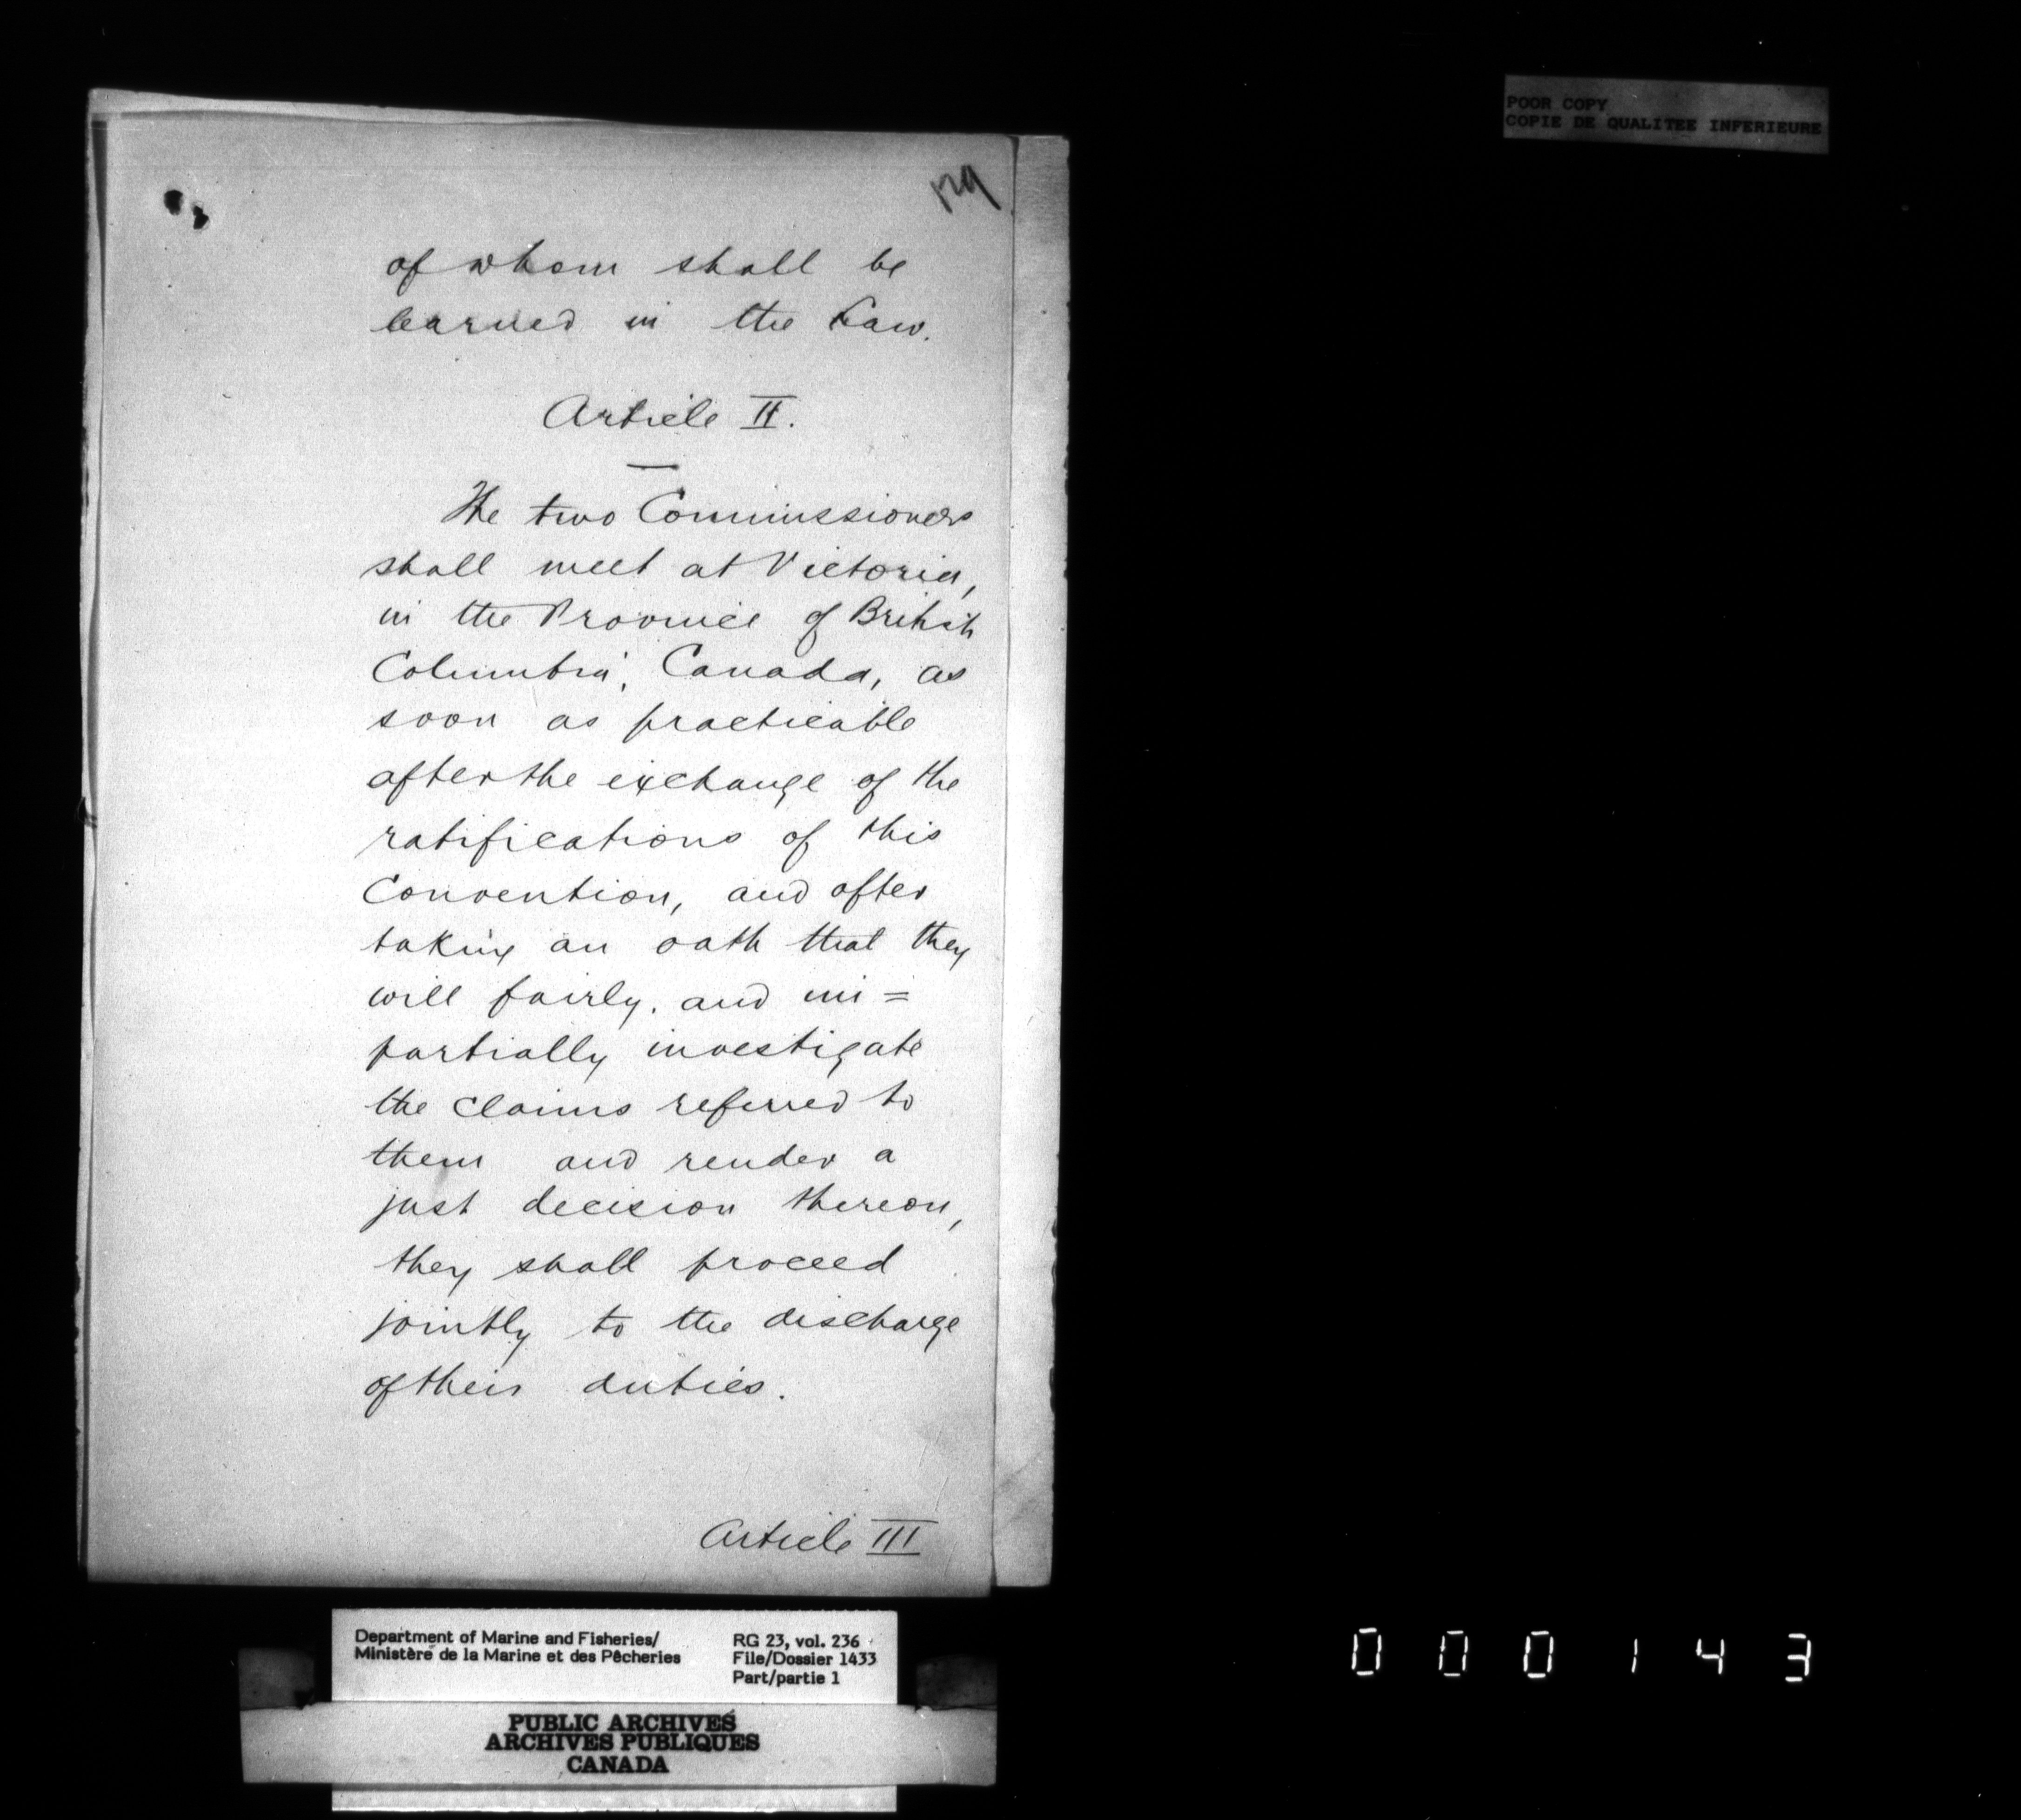 POOR COPY
COPIE DE QUALITEE INFERIEURE
129
of whom shall be
learned in the Law.
Article II.
The two Commissioners
shall meet at Victoria,
in the Province of British
Columbia, Canada, as
soon as practicable
after the exchange of the
ratifications of this
Convention, and after
taking an oath that they
will fairly, and im=
partially investigate
the claims referred to
them and render a
just decision thereon,
they shall proceed
jointly to the discharge
of their duties.
Article III
Department of Marine and Fisheries/
Ministère de la Marine et des Pêcheries
RG 23, vol. 236
File/Dossier 1433
Part/partie 1
PUBLIC ARCHIVES
ARCHIVES PUBLIQUES
CANADA
000143